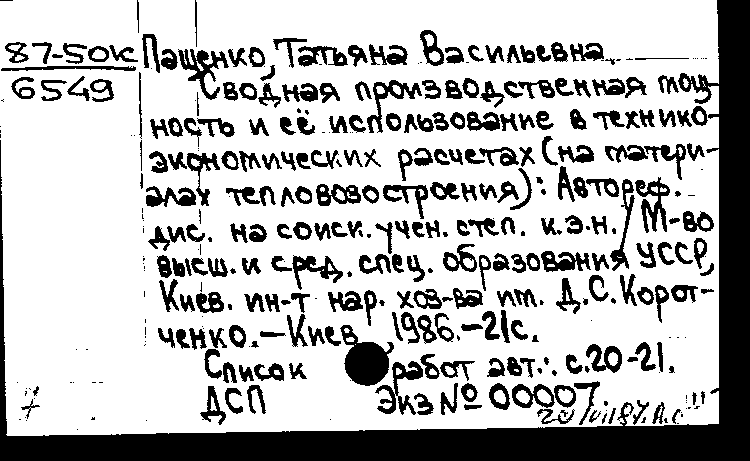 87-50к
6549
Пащенко, Татьяна Васильевна.
Сводная производственная мощ-
ность и её использование в технико-
экономических расчетах (на матери-
алах тепловозостроения): Автореф.
дис. на соиск. учен. степ. к.э.н. / М-во
высш. и сред. спец. образования УССР,
Киев. ин-т нар. хоз-ва им. Д.С. Корот-
ченко. – Киев, 1986. – 21с.
Список работ авт.: с.20-21.
ДСП Экз № 00007.